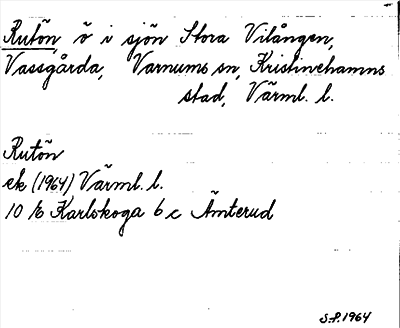 Rutön, ö i sjön Stora Vilången,
Vassgårda, Varnums sn, Kristinehamns
stad, Värml. l.
Rutön
ek (1964) Värml. l.
10 E Karlskoga 6 c Ämterud
S.P. 1964